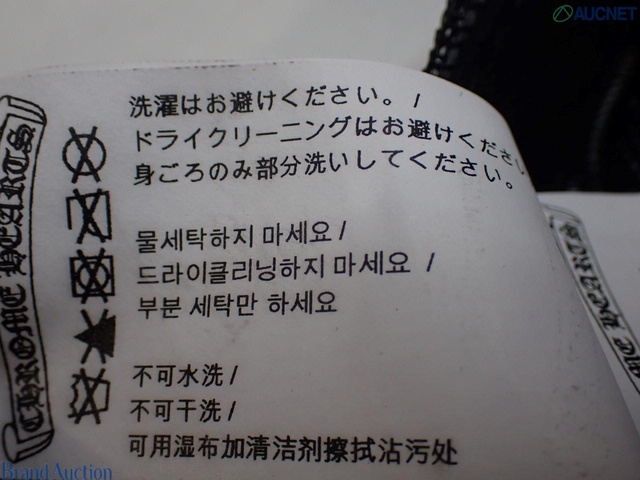 AUCNET
洗濯はお避けください。/
ドライクリーニングはお避けくださ
身ごろのみ部分洗いしてください。
물세탁하지 마세요 /
드라이클리닝하지 마세요 /
부분 세탁만 하세요
不可水洗 /
不可干洗 /
可用湿布加清洁剂擦拭沾污处
CHROME HEARTS
Brand Auction